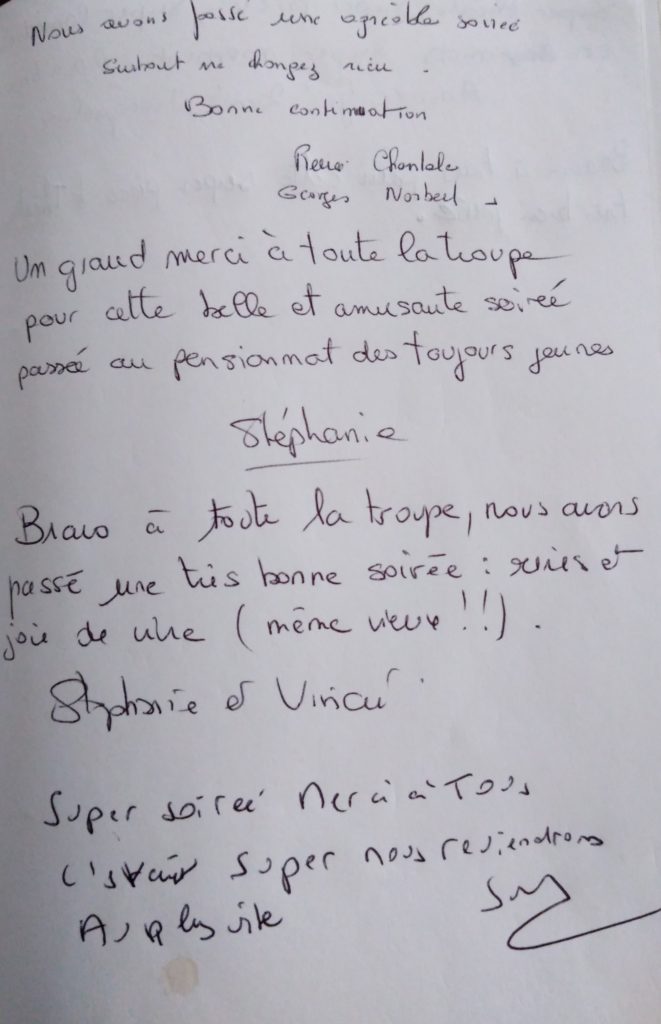 Nous avons passé une agréable soirée
Surtout ne changez rien .
Bonne continuation
Pierre Chantale
Georges Norbert
Un grand merci à toute la troupe
pour cette belle et amusante soireé
passeé au pensionnat des toujours jeunes
Stéphanie
Bravo à toute la troupe, nous avons
passé une très bonne soirée : rires et
joie de vivre ( même vieux !!) .
Stéphanie et
Super soireé Merci à Tous
C'était super nous reviendrons
Au plus vite